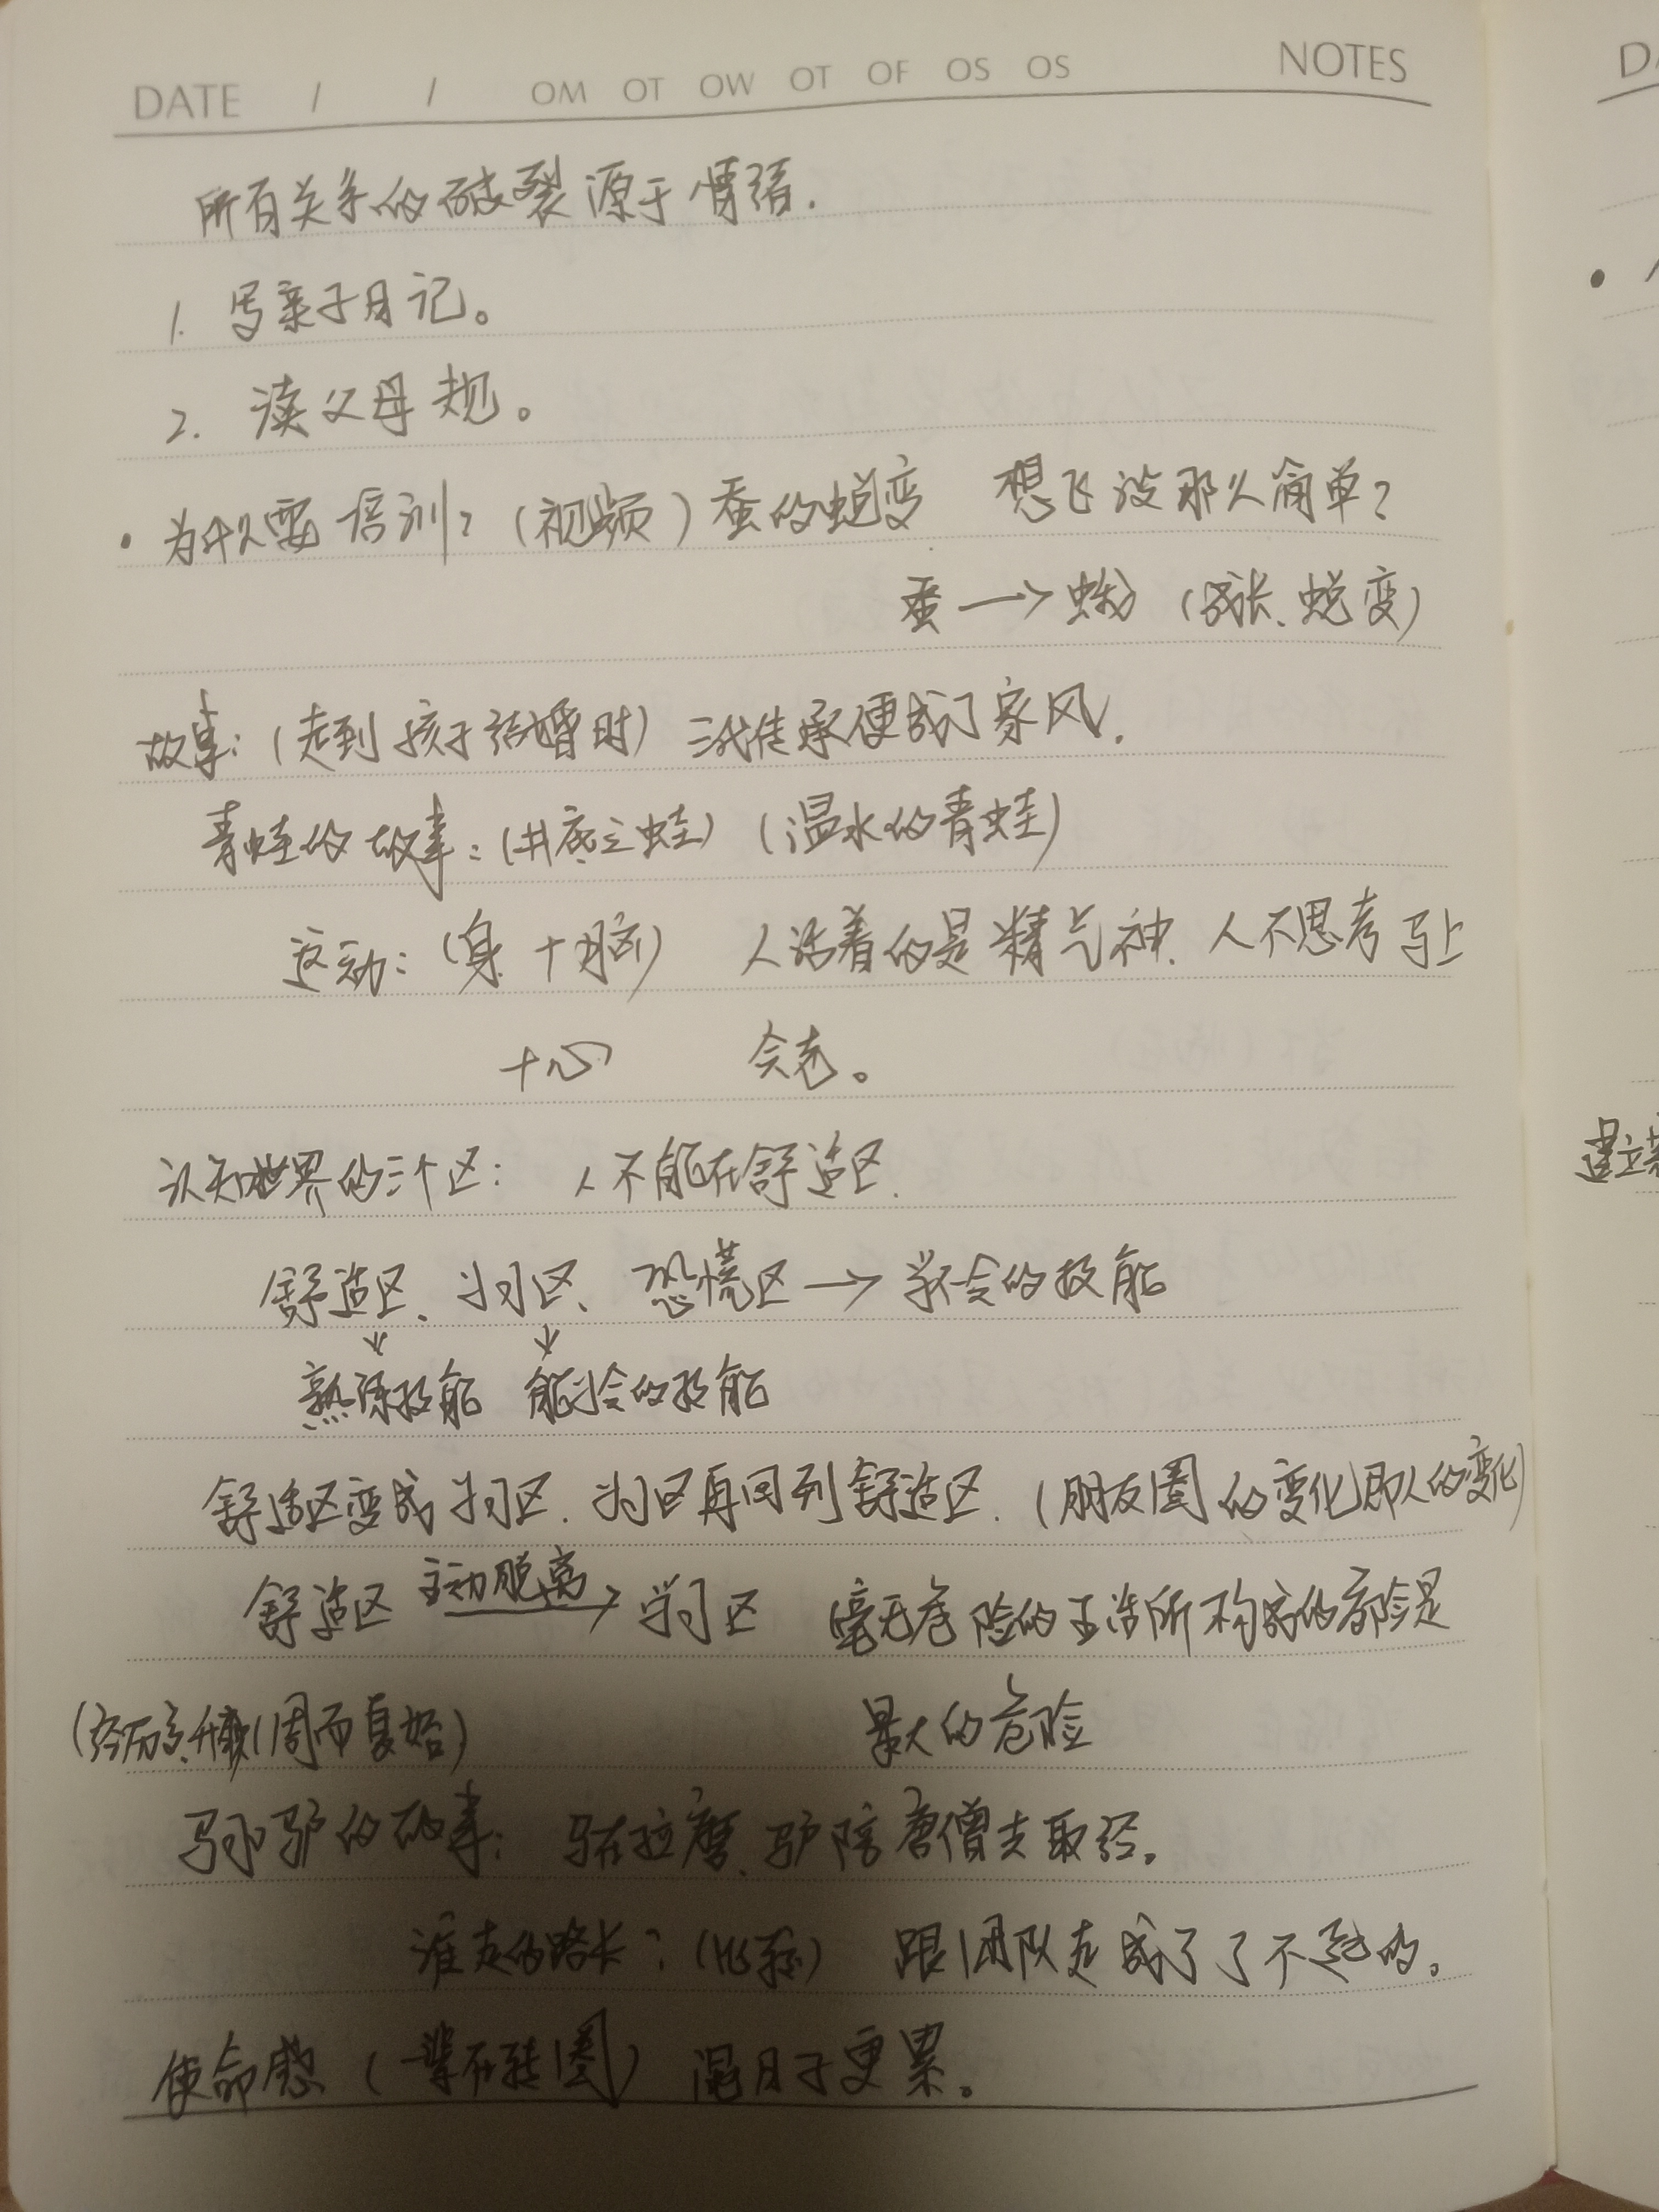 DATE / / OM OT OW OT OF OS OS NOTES
所有关系的破裂源于情绪.
1. 写亲子日记。
2. 读父母规。
• 为什么要培训？(视频) 蚕的蜕变 想飞没那么简单？
蚕 → 蛾 (成长、蜕变)
故事：(走到孩子结婚时) 三代传承便成了家风.
青蛙的故事：(井底之蛙) (温水的青蛙)
运动：(身+脑) 人活着的是精气神. 人不思考马上
+心 会老。
认知世界的三个区： 人不能在舒适区.
舒适区、学习区、恐慌区 → 学不会的技能
熟练技能 能学会的技能
舒适区变成学习区. 学习区再回到舒适区. (朋友圈的变化即人的变化)
舒适区 主动脱离 → 学习区 毫无危险的生活所构成的危险是
周而复始) 最大的危险
马和驴的故事： 马在拉磨、驴陪唐僧去取经。
谁走的路长？ 跟团队走成了了不起的。
使命感 (一辈子在转圈) 混日子更累。
建立